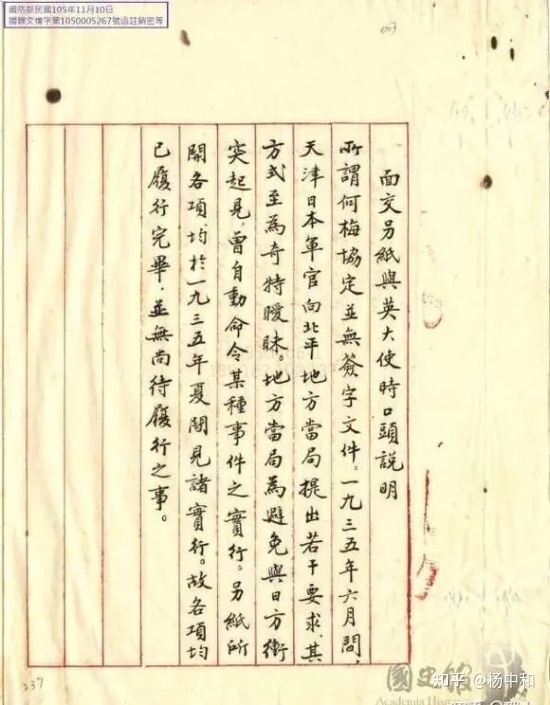 國防部民國105年11月10日
國聯文檔字第1050005267號函註銷密等
003
面交另紙與英大使時口頭説明
所謂何梅協定並無簽字文件。一九三五年六月間，
天津日本軍官向北平地方當局提出若干要求，其
方式至為奇特曖昧。地方當局為避免與日方衝
突起見，曾自動命令某種事件之實行。另紙所
開各項均於一九三五年夏間見諸實行。故各項均
已履行完畢，並無尚待履行之事。
237
國史館
Academia His
知乎 @杨中和